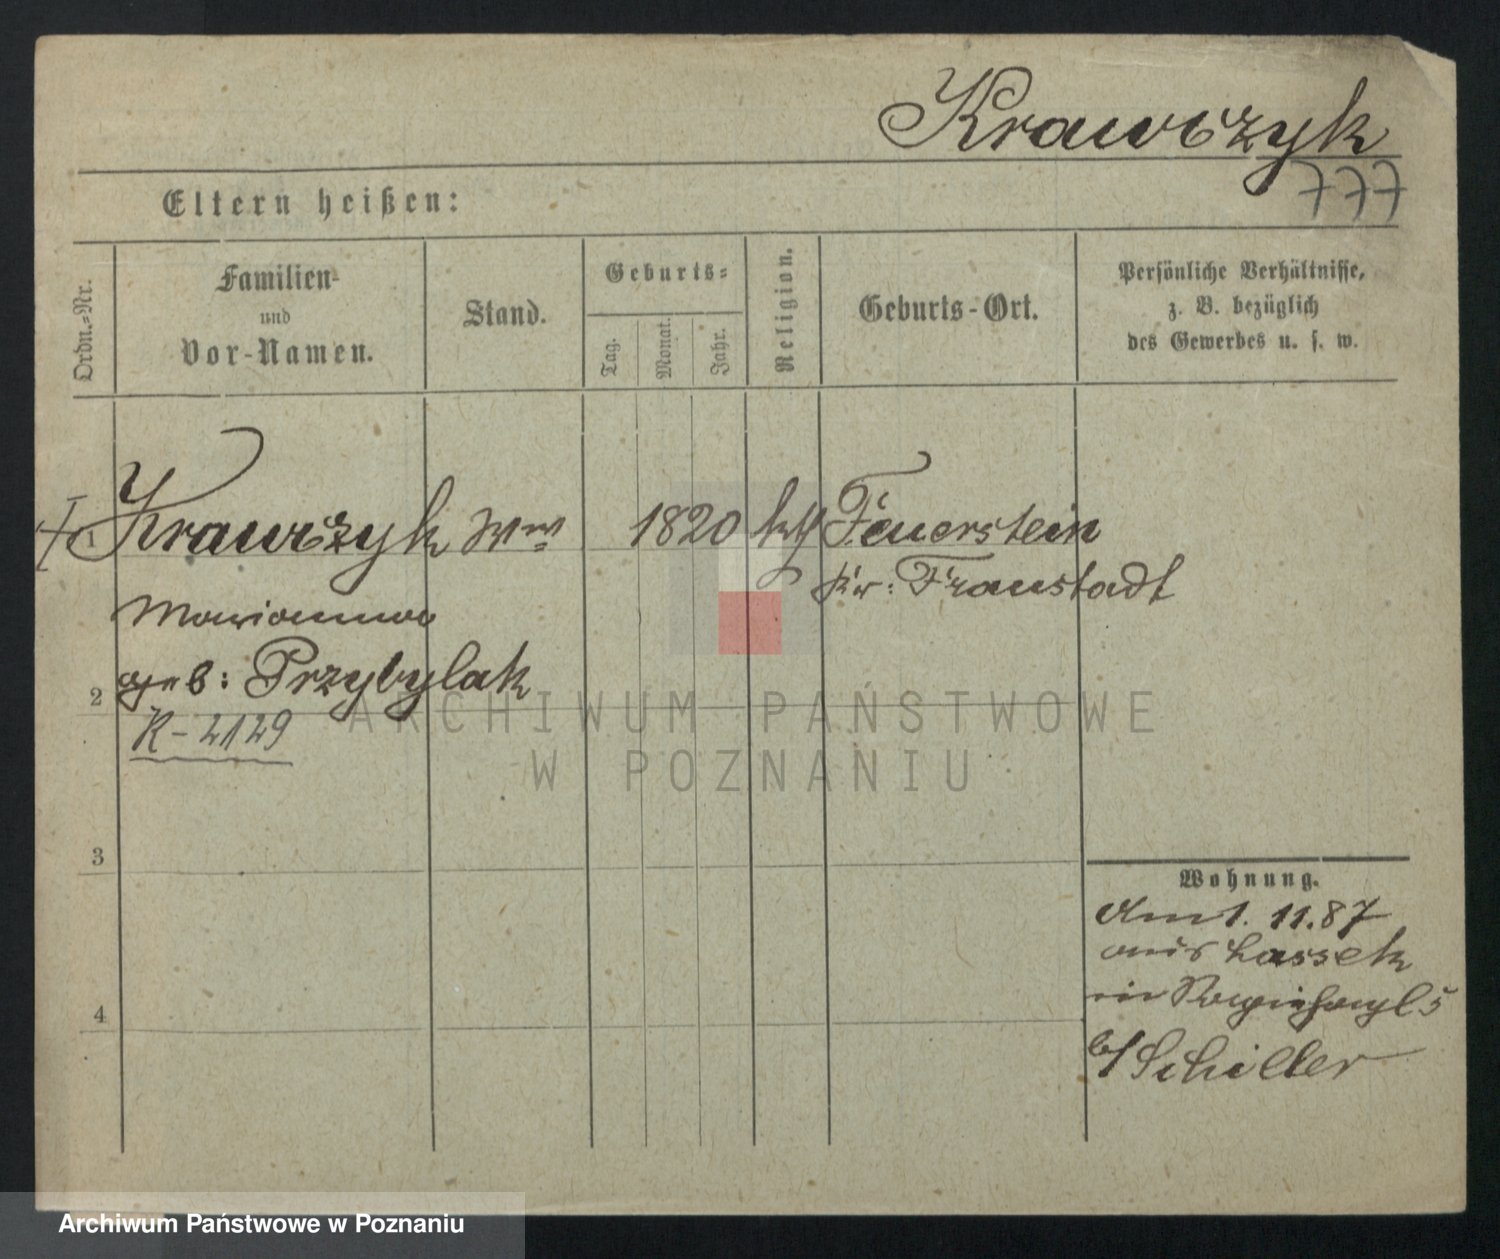 Krawczyk
777
Eltern heißen:
Ordn.-Nr.
Familien-
und
Vor-Namen.
Stand.
Geburts-
Tag.
Monat.
Jahr.
Religion.
Geburts-Ort.
Persönliche Verhältnisse,
z. B. bezüglich
des Gewerbes u. s. w.
1 Krawczyk Wwe 1820 kth Feuerstein
Kr: Fraustadt
Marianna
geb: Przybylak
2
R-2129
ARCHIWUM PAŃSTWOWE
W POZNANIU
3
Wohnung.
Am 1. 11. 87
aus Lassek
in 5
b/ Schiller
4
Archiwum Państwowe w Poznaniu